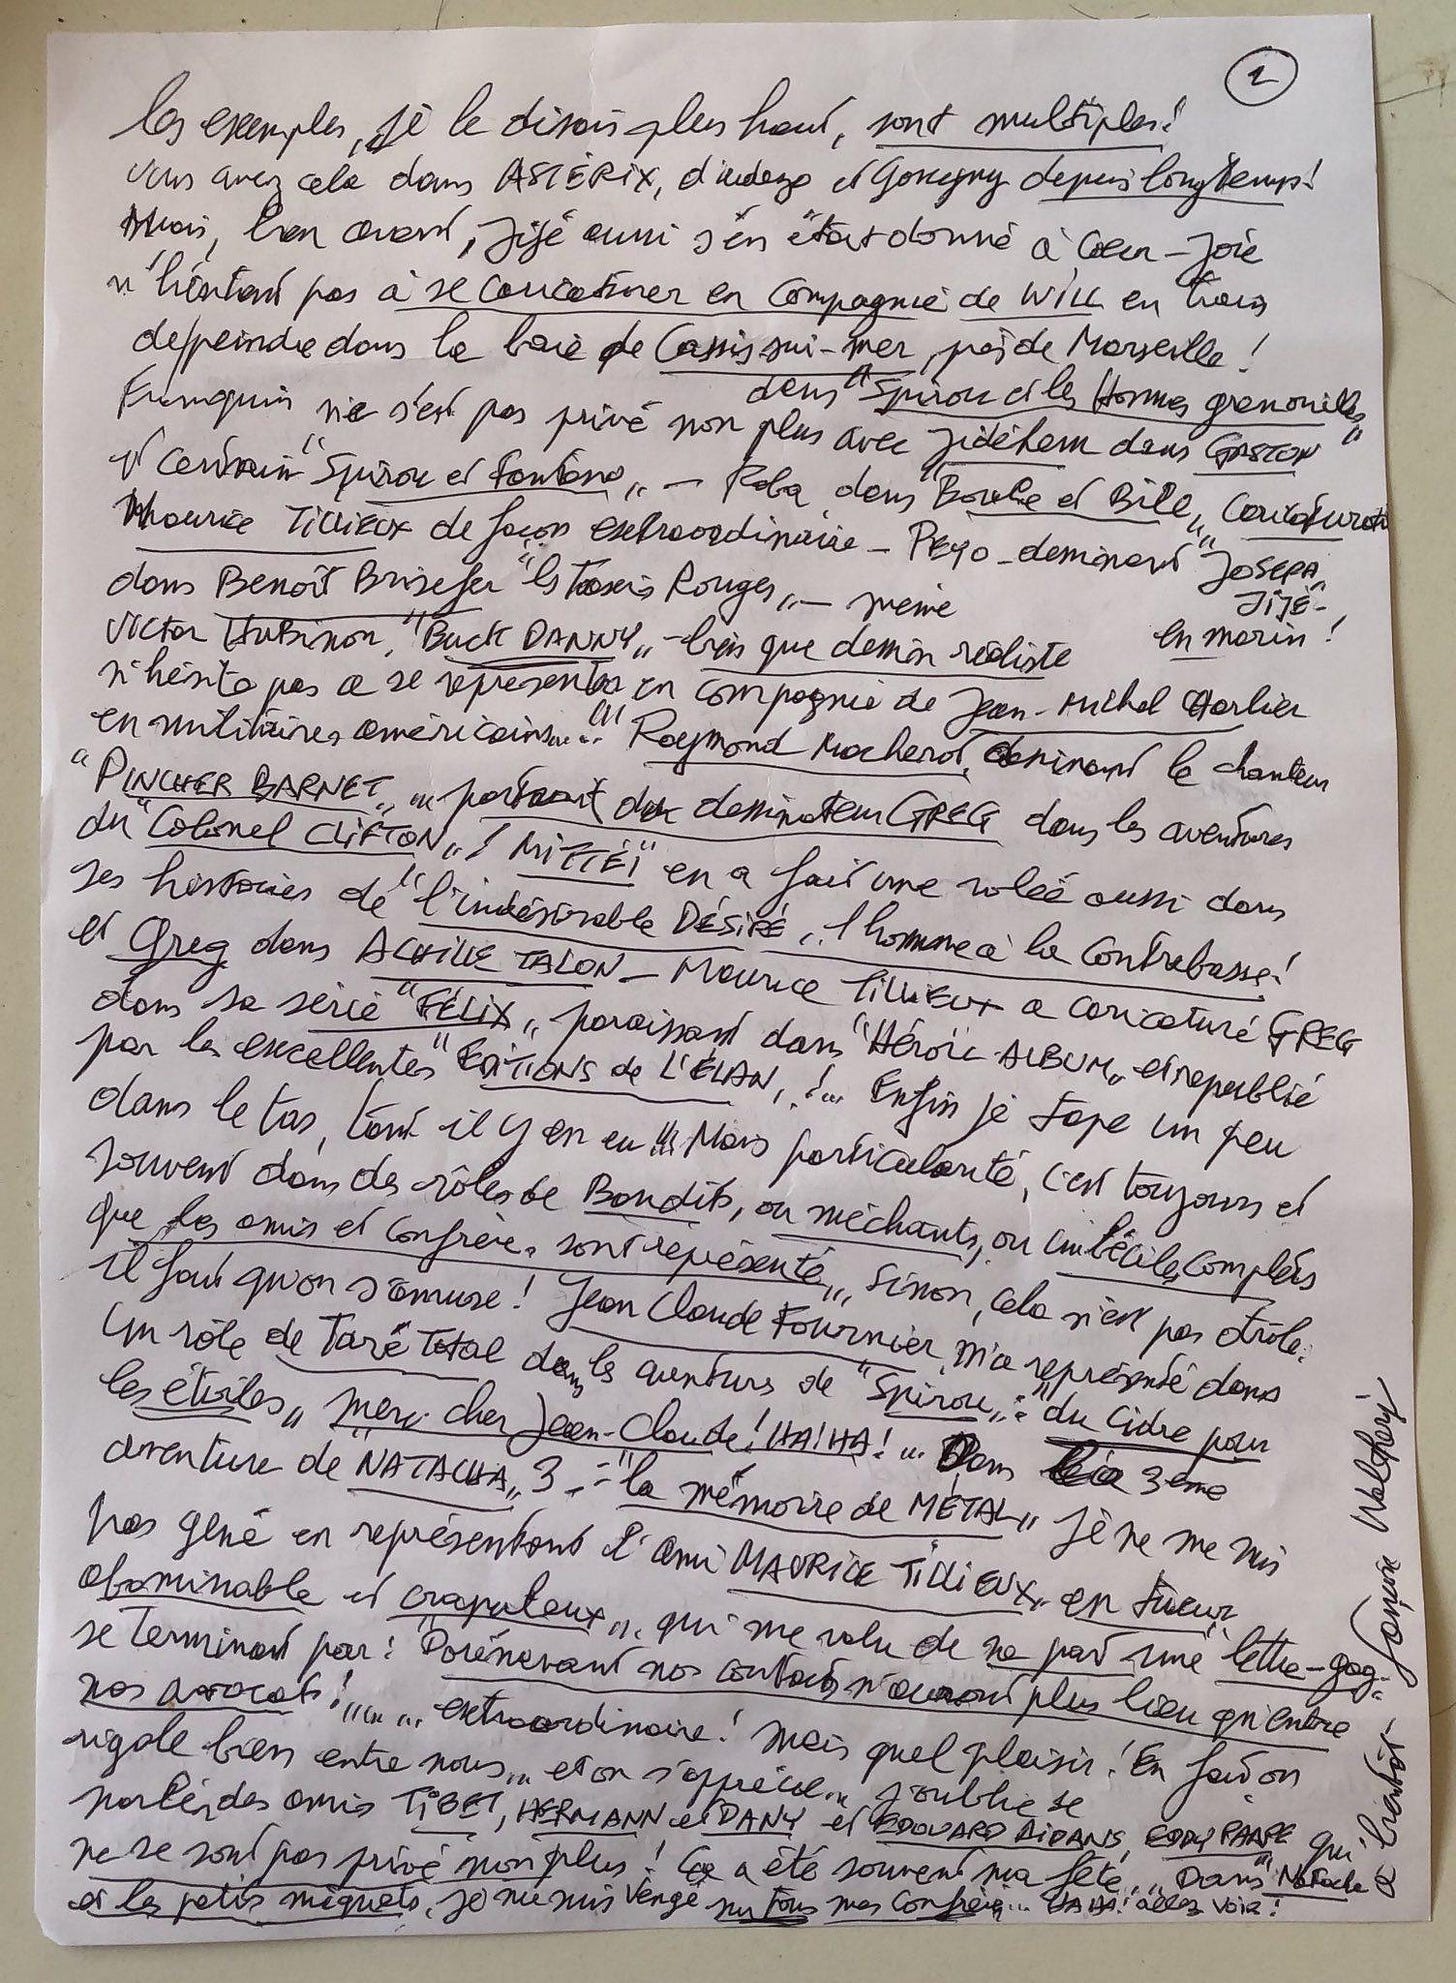 1
les exemples, je le disais plus haut, sont multiples!
vous avez cela dans ASTÉRIX, d'uderzo et Goscigny depuis longtemps!
Mais, bien avant, Jijé aussi s'en était donné à Cœur-Joie
n'hésitant pas à se caricaturer en compagnie de WILL en train
de peindre dans la baie de Cassis sur-mer, près de Marseille!
dans "Spirou et les Hommes grenouilles"
Franquin ne s'est pas privé non plus avec Jidéhem dans GASTON
et certain "Spirou et Fantasio" - Roba, dans "Boule et Bill" caricaturant
Maurice TILLIEUX de façon extraordinaire - PEYO - dessinant "JOSEPH
JIJÉ" -
dans Benoît Brisefer "les Taxis Rouges" - même
en marin!
Victor HUBINON, "BUCK DANNY" - bien que dessin réaliste
n'hésite pas à se représenter en compagnie de Jean-Michel Charlier
en militaires américains...!!! Raymond Macherot, dessinant le chanteur
"PINCHER BARNET" ... portrait du dessinateur GREG dans les aventures
du "Colonel CLIFTON"! "MITTÉÏ" en a fait une volée aussi dans
ses histoires de "l'indésirable DÉSIRÉ", l'homme à la Contrebasse!
et Greg dans ACHILLE TALON - Maurice TILLIEUX a caricaturé GREG
dans sa série "FÉLIX", paraissant dans "Héroïc-ALBUM" et republié
par les excellentes "ÉDITIONS de L'ÉLAN"!... Enfin je tape un peu
dans le tas, tant il y en eu!!! Mais particularité, c'est toujours et
souvent dans des rôles de Bandits, ou méchants, ou imbéciles complets
que les amis et confrère, sont représenté, Sinon, cela n'est pas drôle.
il faut qu'on s'amuse! Jean Claude Fournier m'a représenté dans
un rôle de Taré Total dans les aventures de "Spirou": "du Cidre pour
les étoiles" merci cher Jean-Claude! HA! HA!... Dans la 3ème
aventure de "NATACHA" 3 : "la mémoire de MÉTAL" je ne me suis
pas gêné en représentant l'ami MAURICE TILLIEUX en tueur
abominable et crapuleux, qui me valu de sa part une lettre-gag-
se terminant par: "Dorénavant nos contacts n'auront plus lieu qu'entre
nos avocats!"... extraordinaire! Mais quel plaisir! En fait on
rigole bien entre nous... et on s'apprécie... j'oublie de
parler, des amis TIBET, HERMANN et DANY et EDOUARD AIDANS, EDDY PAAPE qui
ne se sont pas privé non plus! Ça a été souvent ma fête... Dans "Natacha
et les petits miquets, je me suis Vengé sur tous mes confrères... HA HA! allez voir!
à bientôt - François Walthéry